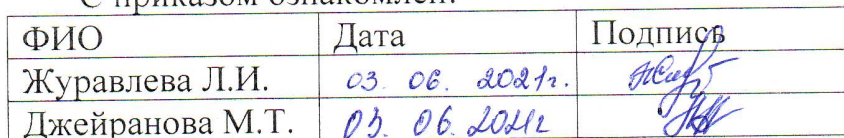 С приказом ознакомлен:
ФИО Дата Подпись
Журавлева Л.И. 03. 06. 2021г.
Джейранова М.Т. 03. 06. 2021г